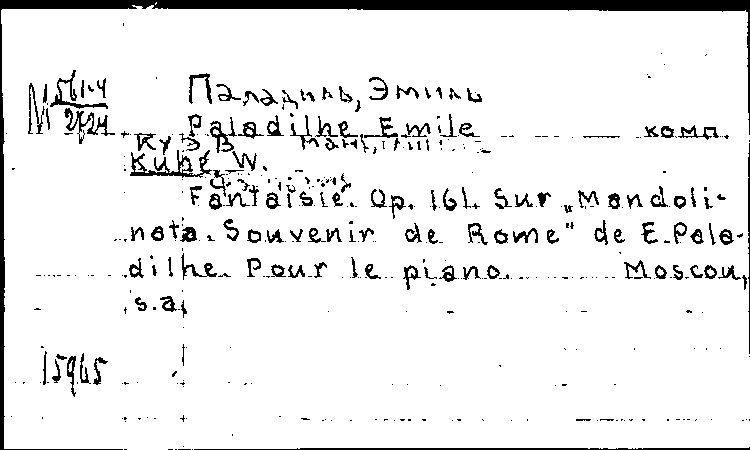 Паладиль, Эмиль
М 561-4
2724
Paladilhe, Emile комп.
Куэ В
Kuhe, W.
Fantaisie. Op. 161. Sur „Mandoli-
nata. Souvenir de Rome" de E. Pala-
dilhe. Pour le piano. Moscou,
s.a.
15965